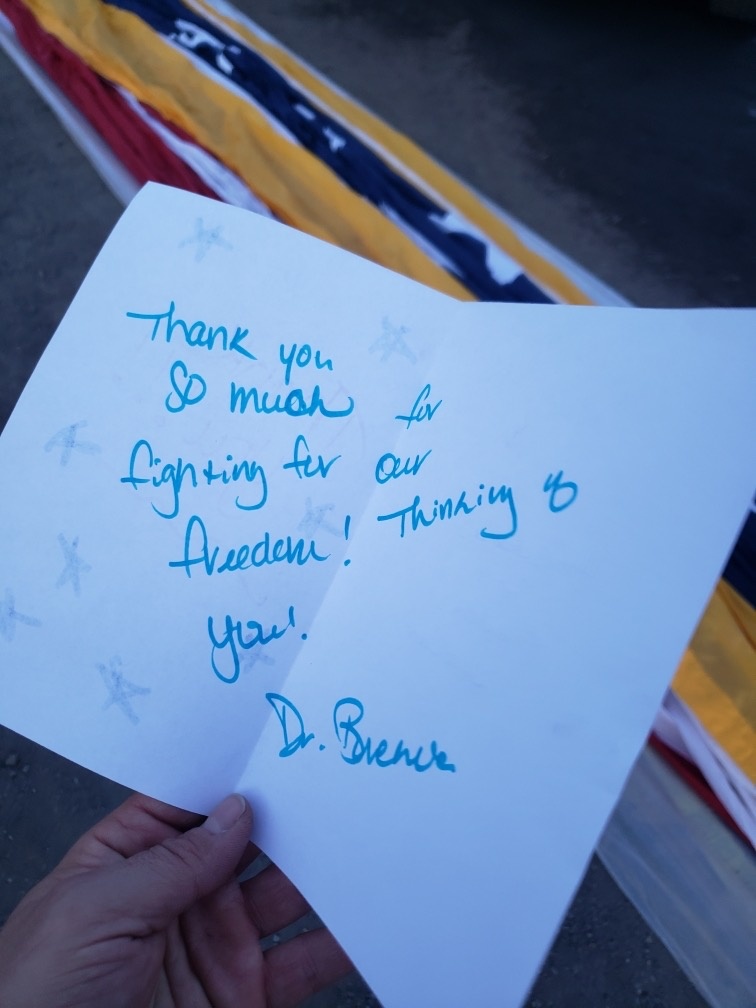 Thank you
so much for
fighting for our
freedom! Thinking of
you!
Dr.